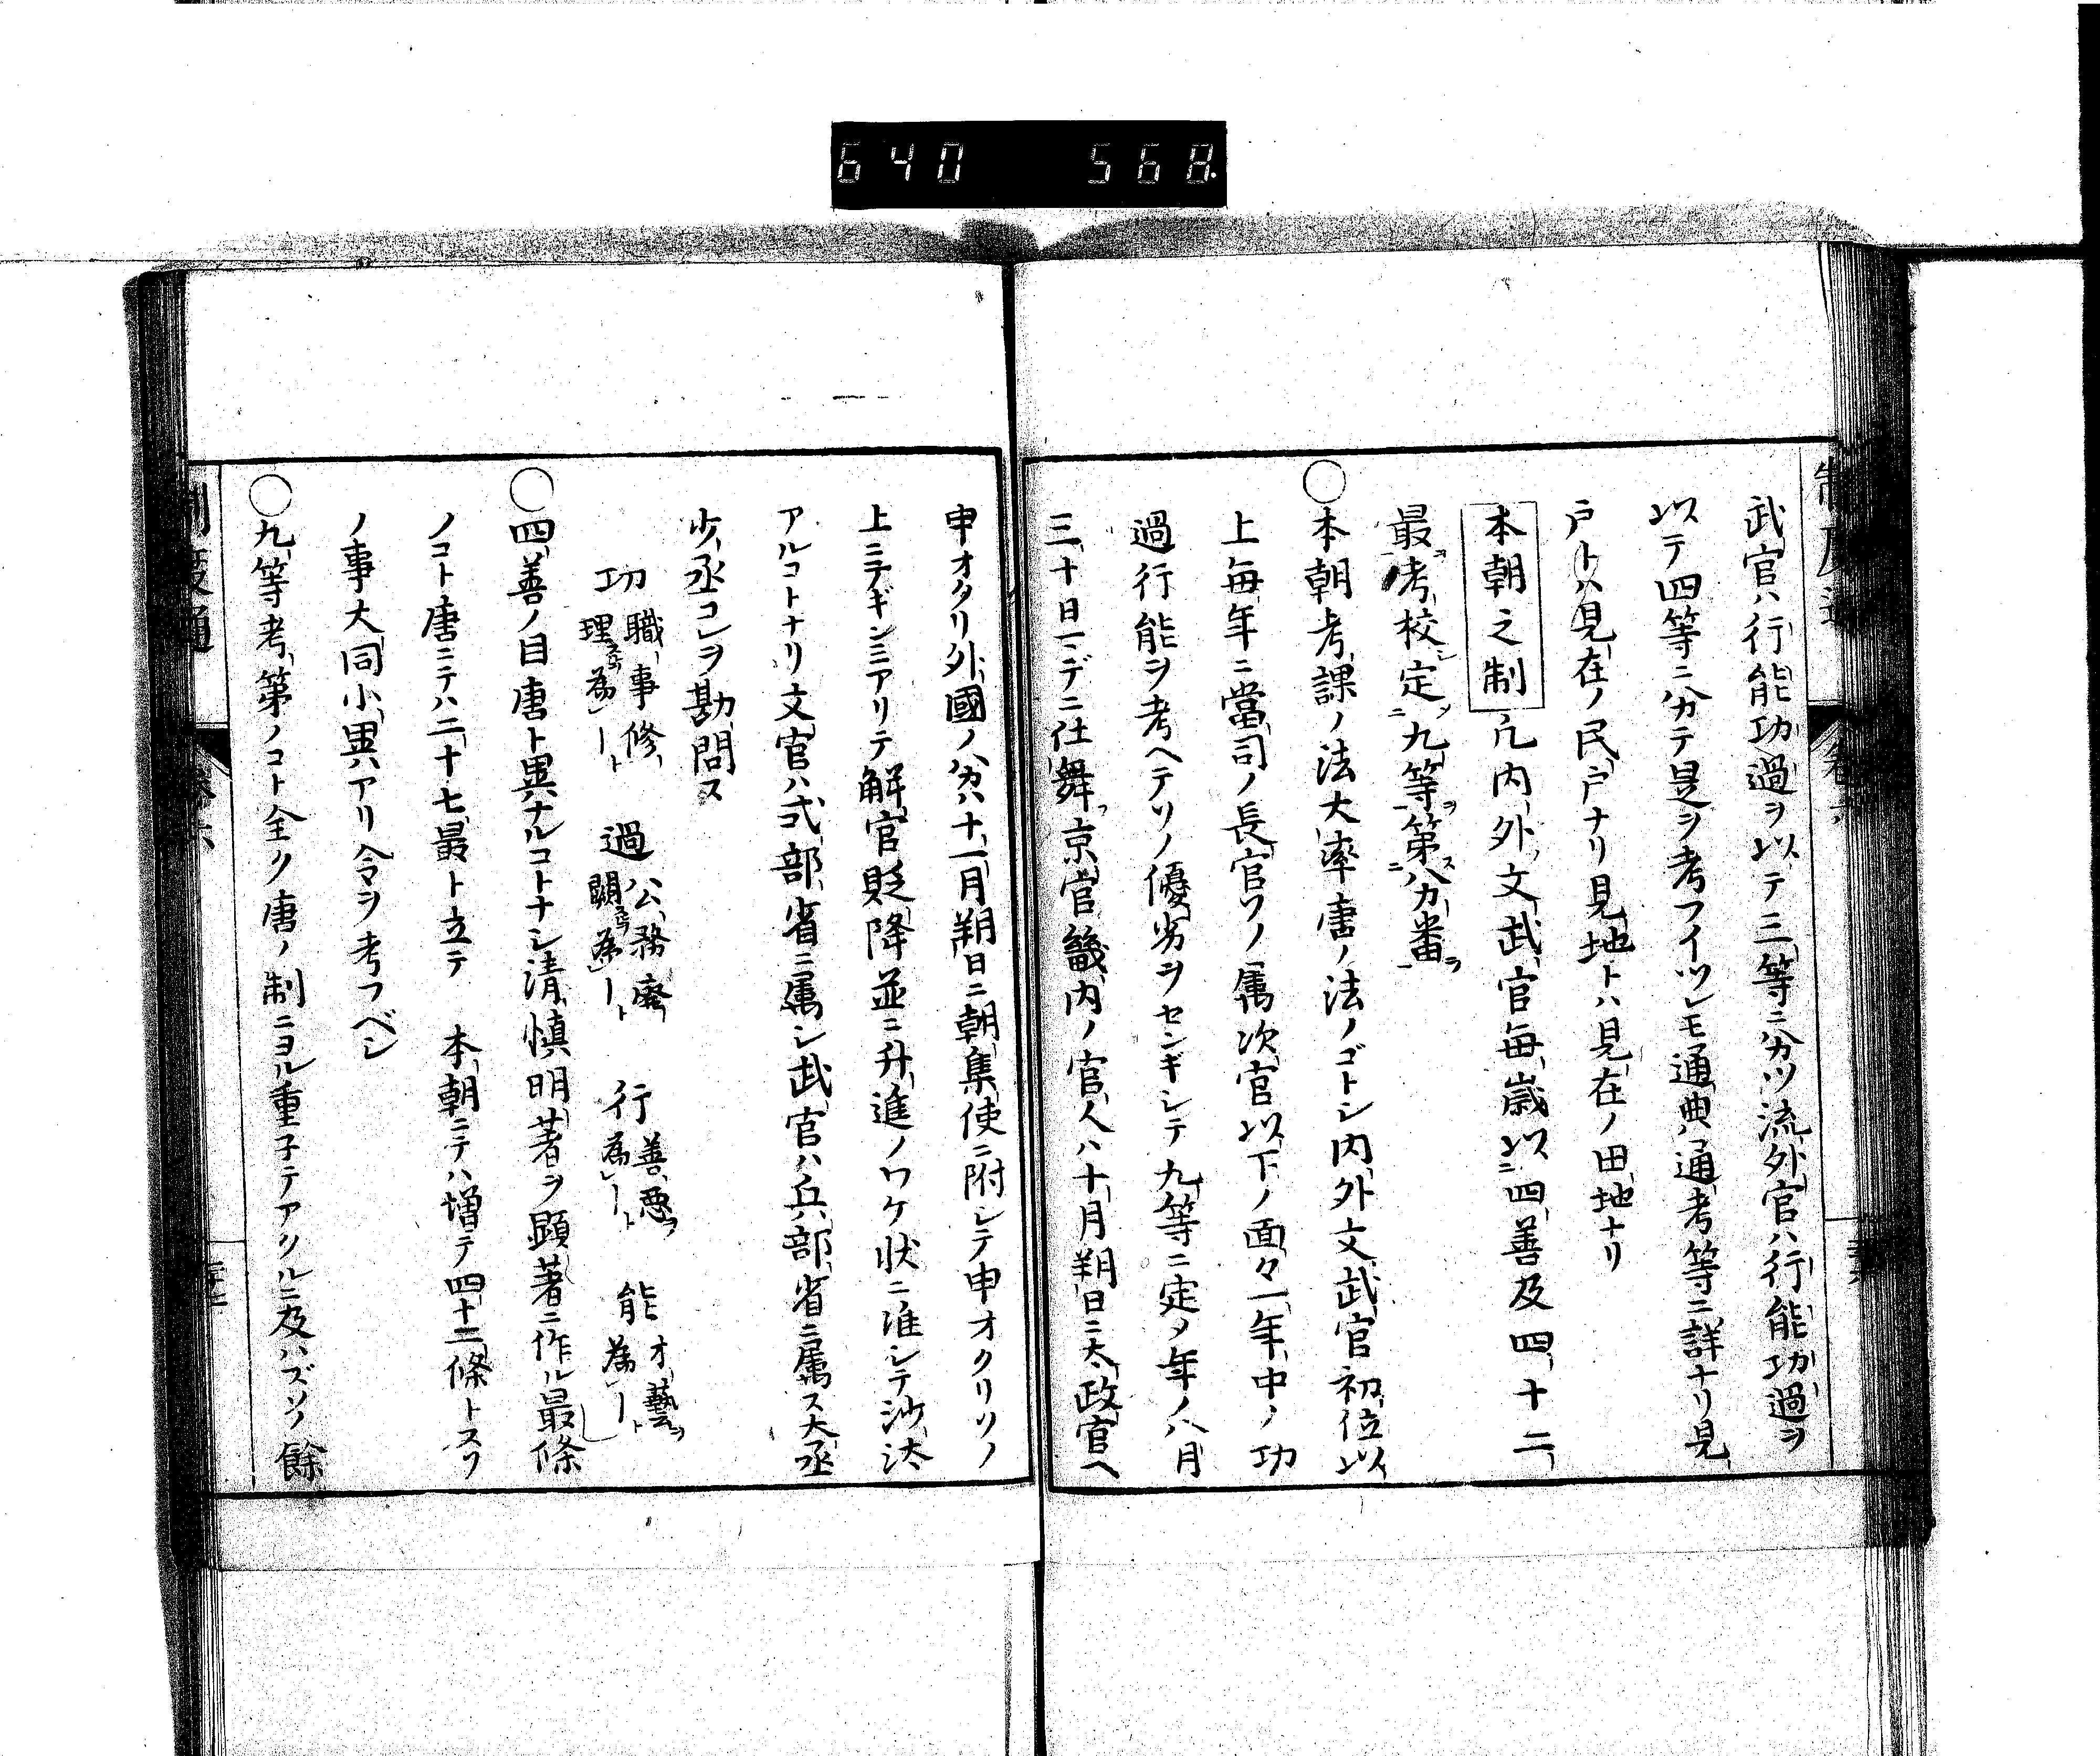 640 568
武官ハ行能功過ヲ以テ三等ニ分ツ流外官ハ行能功過ヲ
以テ四等ニ分テ是ヲ考フイツレモ通典通考等ニ詳ナリ見
戸トハ見在ノ民戸ナリ見地トハ見在ノ田地ナリ
本朝之制 凡内外文武官毎歳以四善及四十二
最考校定九等第分番
○本朝考課ノ法大率唐ノ法ノゴトシ内外文武官初位以
上毎年ニ當司ノ長官ソノ属次官以下ノ面々一年中ノ功
過行能ヲ考ヘテソノ優劣ヲセンギシテ九等ニ定ノ年ノ八月
三十日マデニ仕舞京官畿内ノ官人ハ十月朔日ニ太政官ヘ
申オクリ外國ノ分ハ十一月朔日ニ朝集使ニ附シテ申オクリソノ
上ニテギンミアリテ解官貶降並ニ升進ノワケ状ニ准シテ沙汰
アルコトナリ文官ハ式部省ニ属シ武官ハ兵部省ニ属ス大丞
少丞コレヲ勘問ス
功 職事修理為功ト 過 公務廢闕為過ト 行 善惡為行ト 能 才藝為能ト
○四善ノ目唐ト異ナルコトナシ清慎明著ヲ顕著ニ作ル最條
ノコト唐ニテハ二十七最ト立テ 本朝ニテハ増テ四十二條トスソ
ノ事大同小異アリ令ヲ考フベシ
○九等考第ノコト全ク唐ノ制ニヨル重子テアクルニ及ハズソノ餘
制度通 巻六